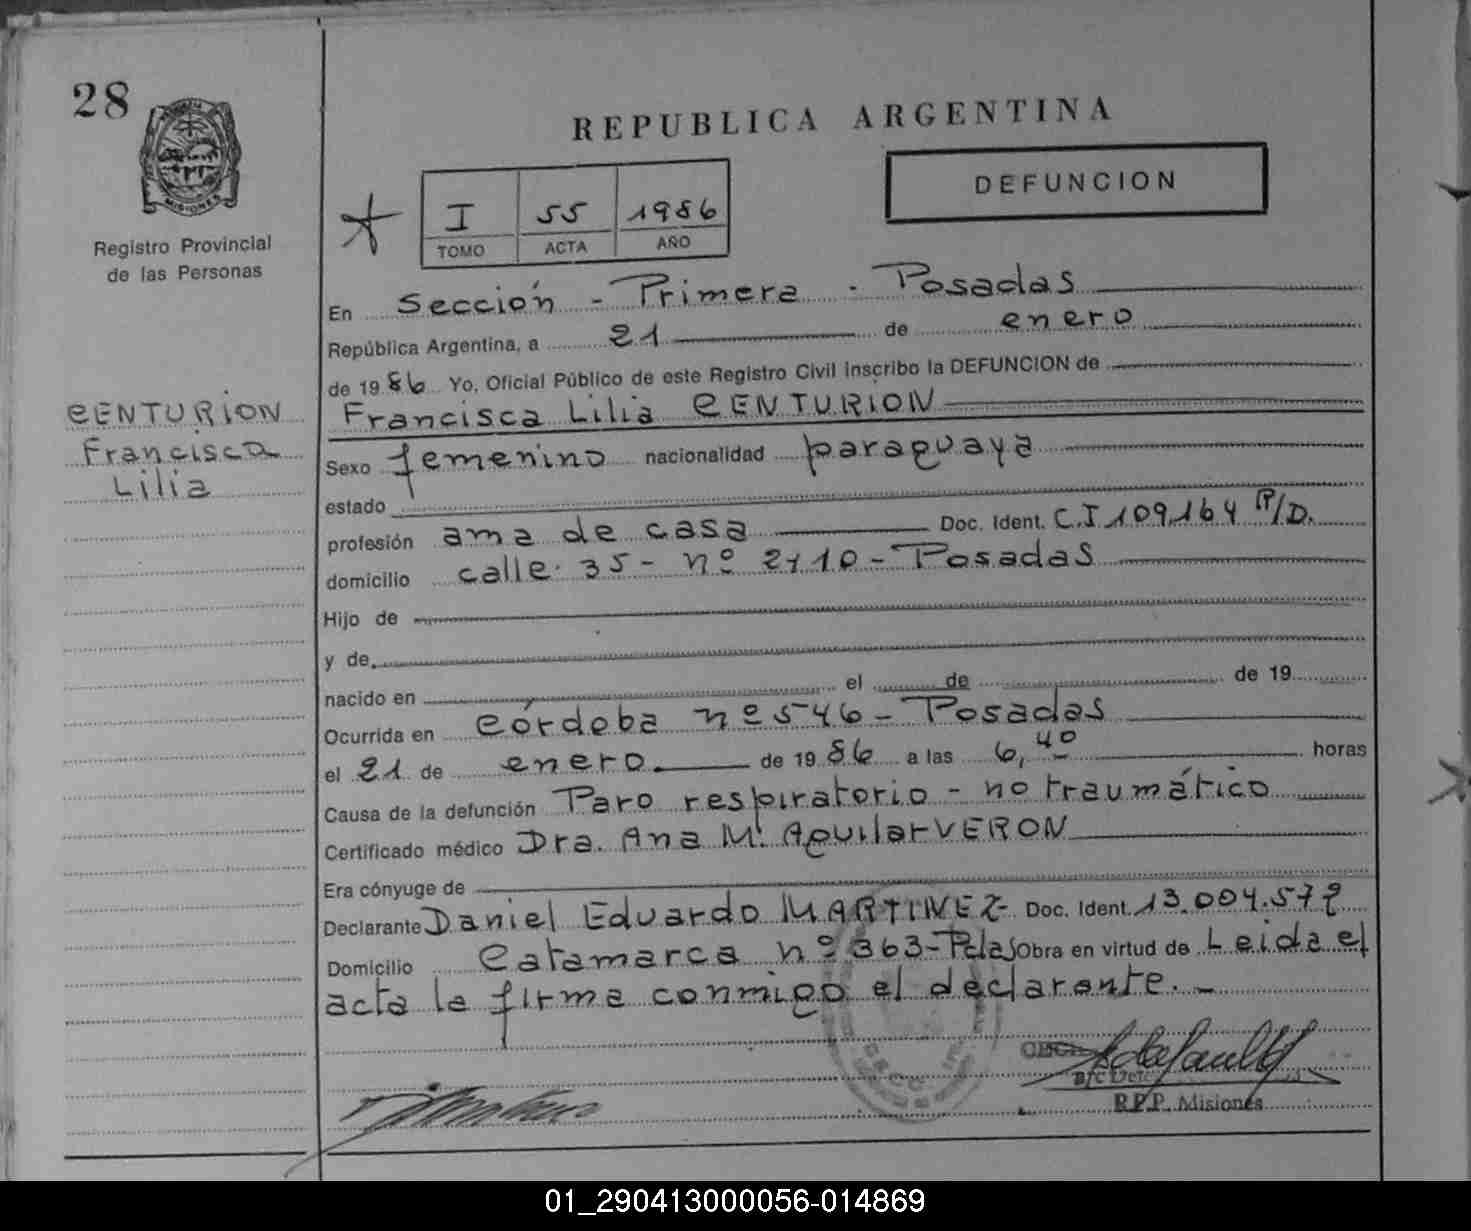 28
REPUBLICA ARGENTINA
DEFUNCION
I 55 1986
TOMO ACTA AÑO
MISIONES
Registro Provincial
de las Personas
En Sección - Primera - Posadas
República Argentina, a 21 de enero
de 1986 Yo, Oficial Público de este Registro Civil inscribo la DEFUNCION de
CENTURION
Francisca
Lilia
Francisca Lilia CENTURION
Sexo femenino nacionalidad paraguaya
estado
profesión ama de casa Doc. Ident. C.I 109,164 P/D.
domicilio calle 35 - nº 2110 - Posadas
Hijo de
y de
nacido en el de de 19
Ocurrida en Córdoba nº 546 - Posadas
el 21 de enero. de 1986 a las 6,40 horas
Causa de la defunción Paro respiratorio - no traumático
Certificado médico Dra. Ana M. Aguilar VERON
Era cónyuge de
Declarante Daniel Eduardo MARTINEZ - Doc. Ident. 13.004.572
Domicilio Catamarca nº 363 - Pdas Obra en virtud de Leida el
acta la firma conmigo el declarante. -
R.P.P. Misiones
01_290413000056-014869